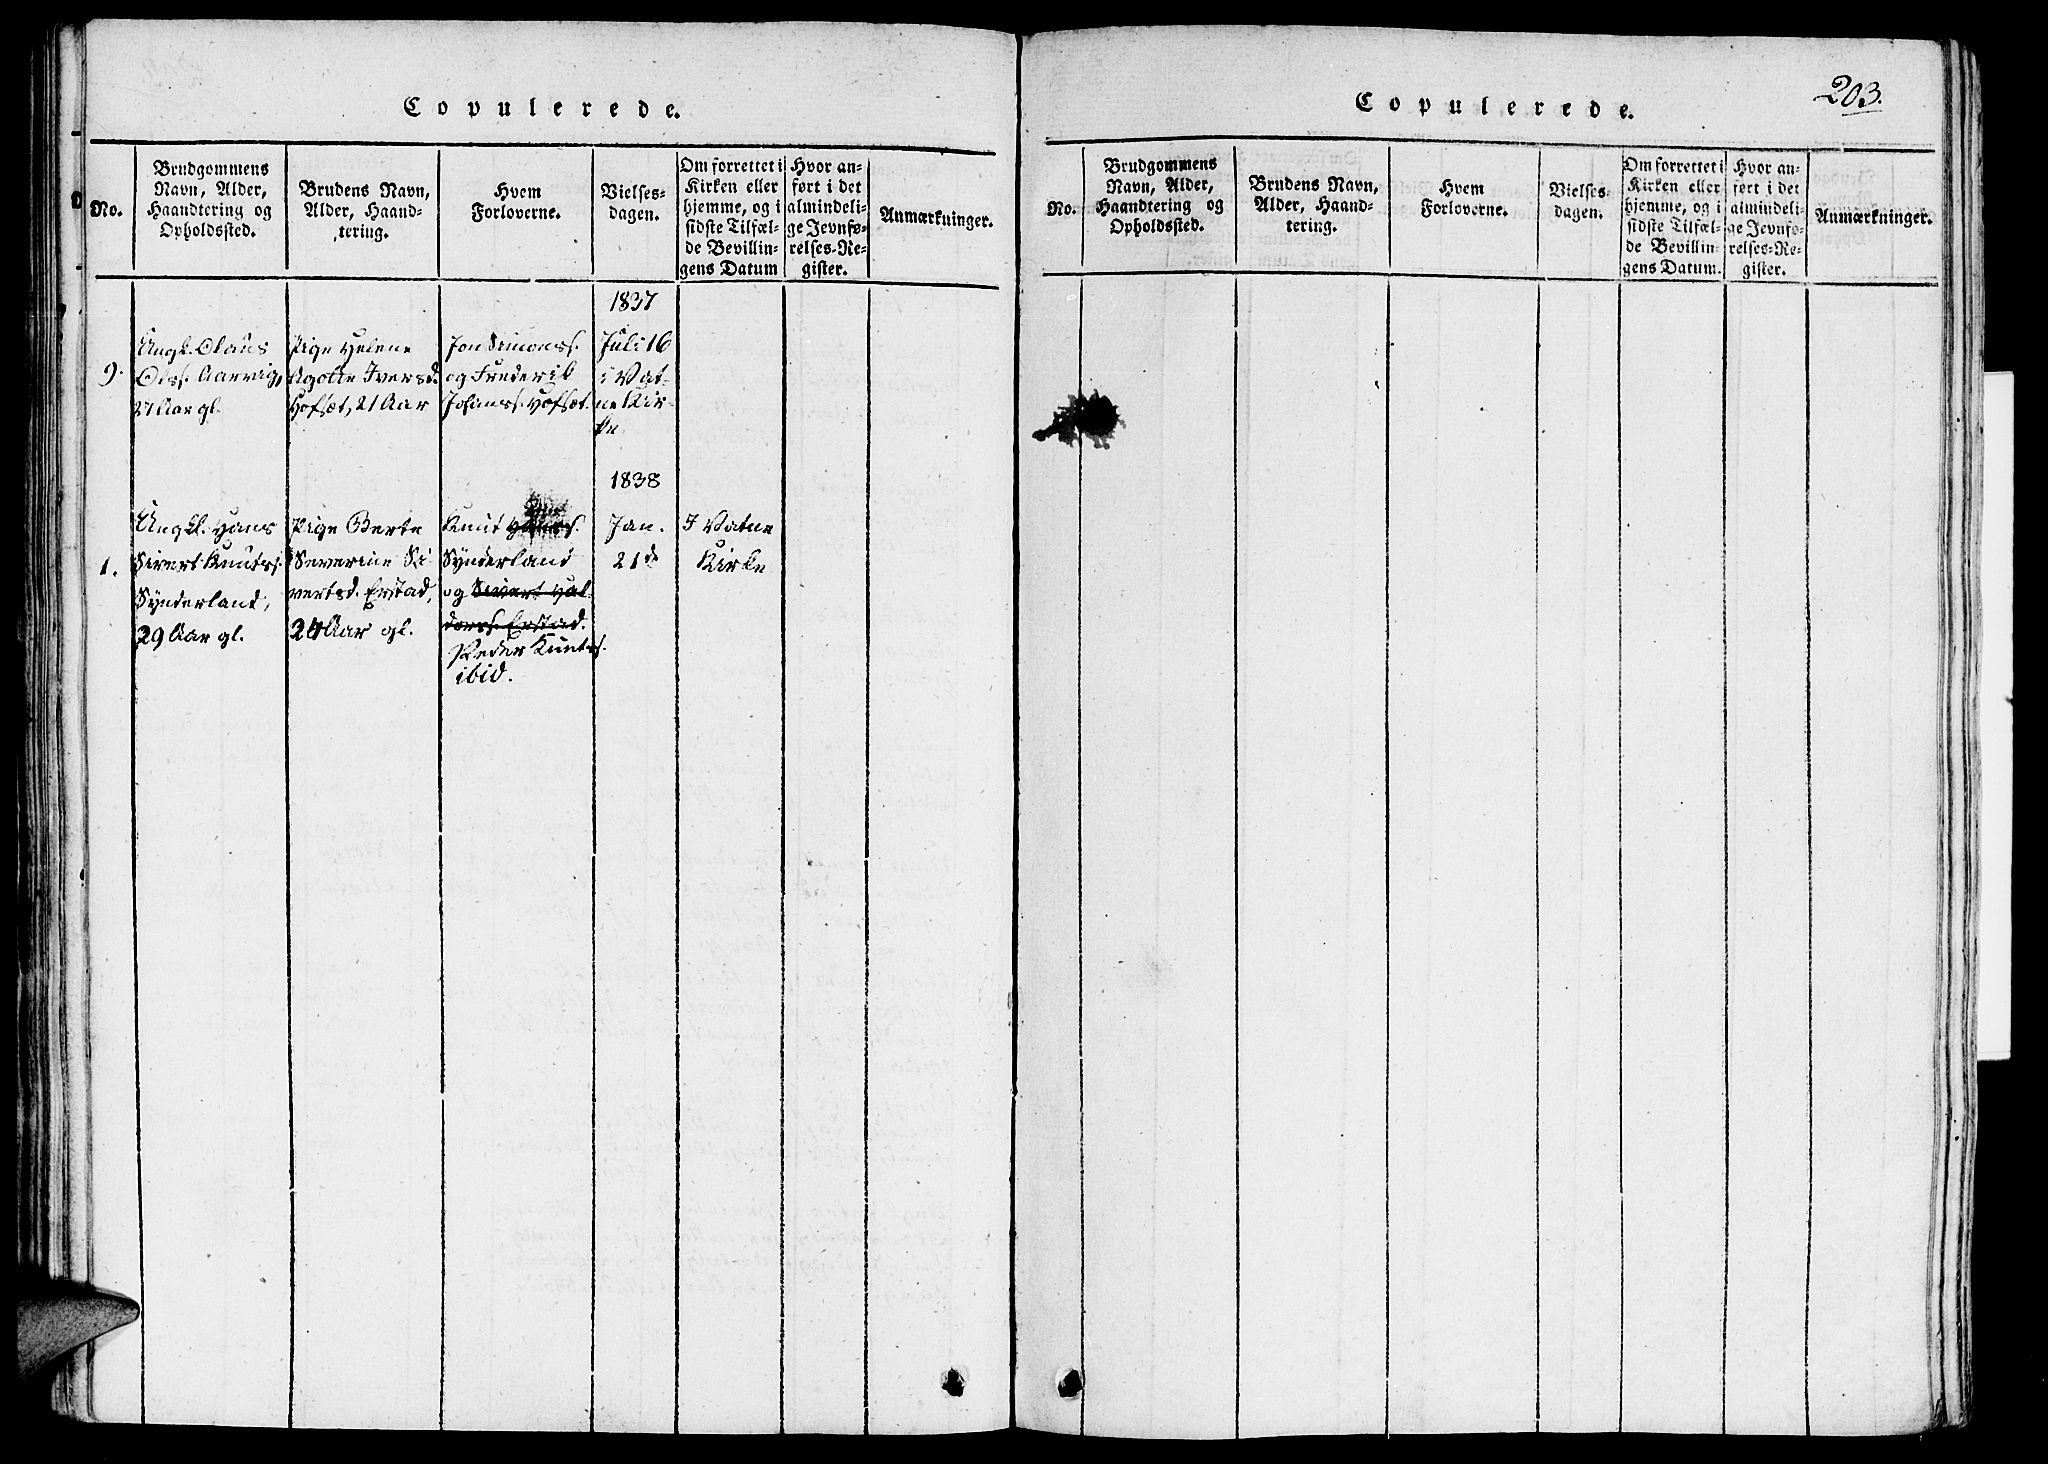 Copulerede.
No.
Brudgommens
Navn, Alder,
Haandtering og
Opholdssted.
Brudens Navn,
Alder, Haand-
tering.
Hvem
Forloverne.
Vielses-
dagen.
Om forrettet i
Kirken eller
hjemme, og i
sidste Tilfæl-
de Bevillin-
gens Datum
Hvor an-
ført i det
almindeli-
ge Jevnfø-
relses-Re-
gister.
Anmærkninger.
1837
9.
Ungk. Olaus
Olss. Aarvig,
27 Aar gl.
Pige Helene
Agotte Iversd.
Hofsæt, 21 Aar
Jon Simonss.
og Frederik
Johanss. Hofsæt.
Juli 16
i Vat-
ne Kir-
ke
1838
1.
Ungk. Hans
Sivert Knutss.
Synderland,
29 Aar gl.
Pige Berte
Severine Si-
vertsd. Erstad,
24 Aar gl.
Knut
Synderland
og Sivert Hal-
dorss. Erstad.
Peder Knutss.
ibid.
Jan.
21de
I Vatne
Kirke
Copulerede.
203.
No.
Brudgommens
Navn, Alder,
Haandtering og
Opholdssted.
Brudens Navn,
Alder, Haand-
tering.
Hvem
Forloverne.
Vielses-
dagen.
Om forrettet i
Kirken eller
hjemme, og i
sidste Tilfæl-
de Bevillin-
gens Datum.
Hvor an-
ført i det
almindeli-
ge Jevnfø-
relses-Re-
gister.
Anmærkninger.